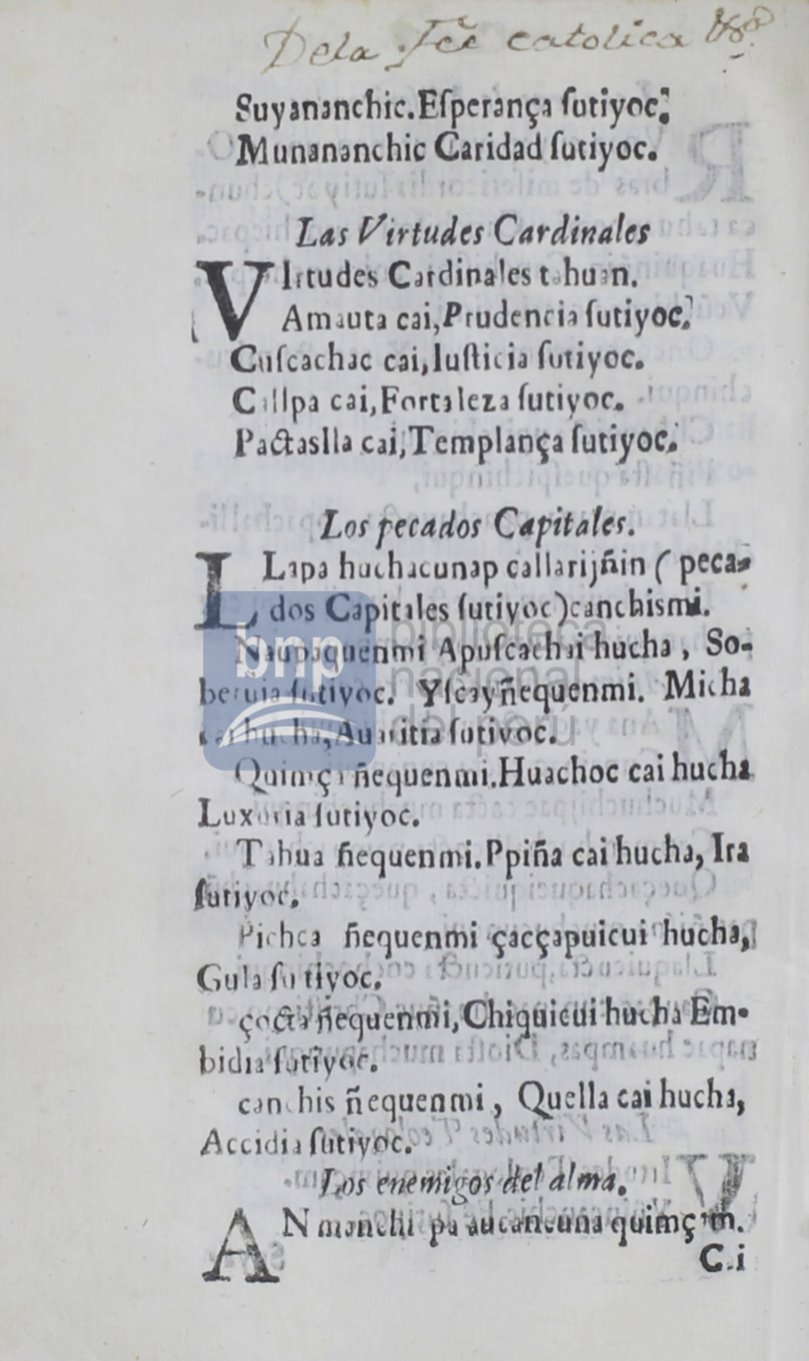 Dela fee catolica
Suyananchic. Eſperança ſutiyoc.
Munananchic Caridad ſutiyoc.
Las Virtudes Cardinales
VIrtudes Cardinales tahuan.
Amauta cai, Prudencia ſutiyoc.
Cuſcachac cai, Iuſticia ſutiyoc.
Callpa cai, Fortaleza ſutiyoc.
Pactaslla cai, Templança ſutiyoc.
Los pecados Capitales.
LLapa huchacunap callarijñin ( peca-
dos Capitales ſutiyoc) canchismi.
Naupaquenmi Apuſcachai hucha, So-
beruia ſutiyoc. Yſcayñequenmi. Micha
cai hucha, Auaritia ſutiyoc.
Quimça ñequenmi. Huachoc cai hucha
Luxuria ſutiyoc.
Tahua ñequenmi. Ppiña cai hucha, Ira
ſutiyoc.
Pichca ñequenmi çacçapuicui hucha,
Gula ſutiyoc.
çocta ñequenmi, Chiquicui hucha Em-
bidia ſutiyoc.
canchis ñequenmi, Quella cai hucha,
Accidia ſutiyoc.
Los enemigos del alma.
ANmanchi pa aucancuna quimçam.
C.i
bnp biblioteca
nacional
del perú